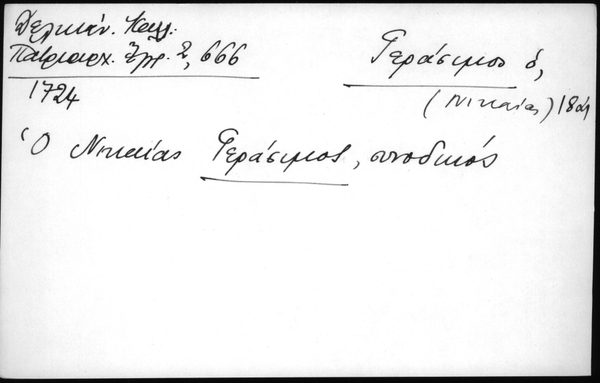 Δελικάν. Καλλ.
Πατριαρχ. Ἔγγρ. 2, 666
1724
Γεράσιμος ὁ,
(Νικαίας) 18ου
Ὁ Νικαίας Γεράσιμος, συνοδικός